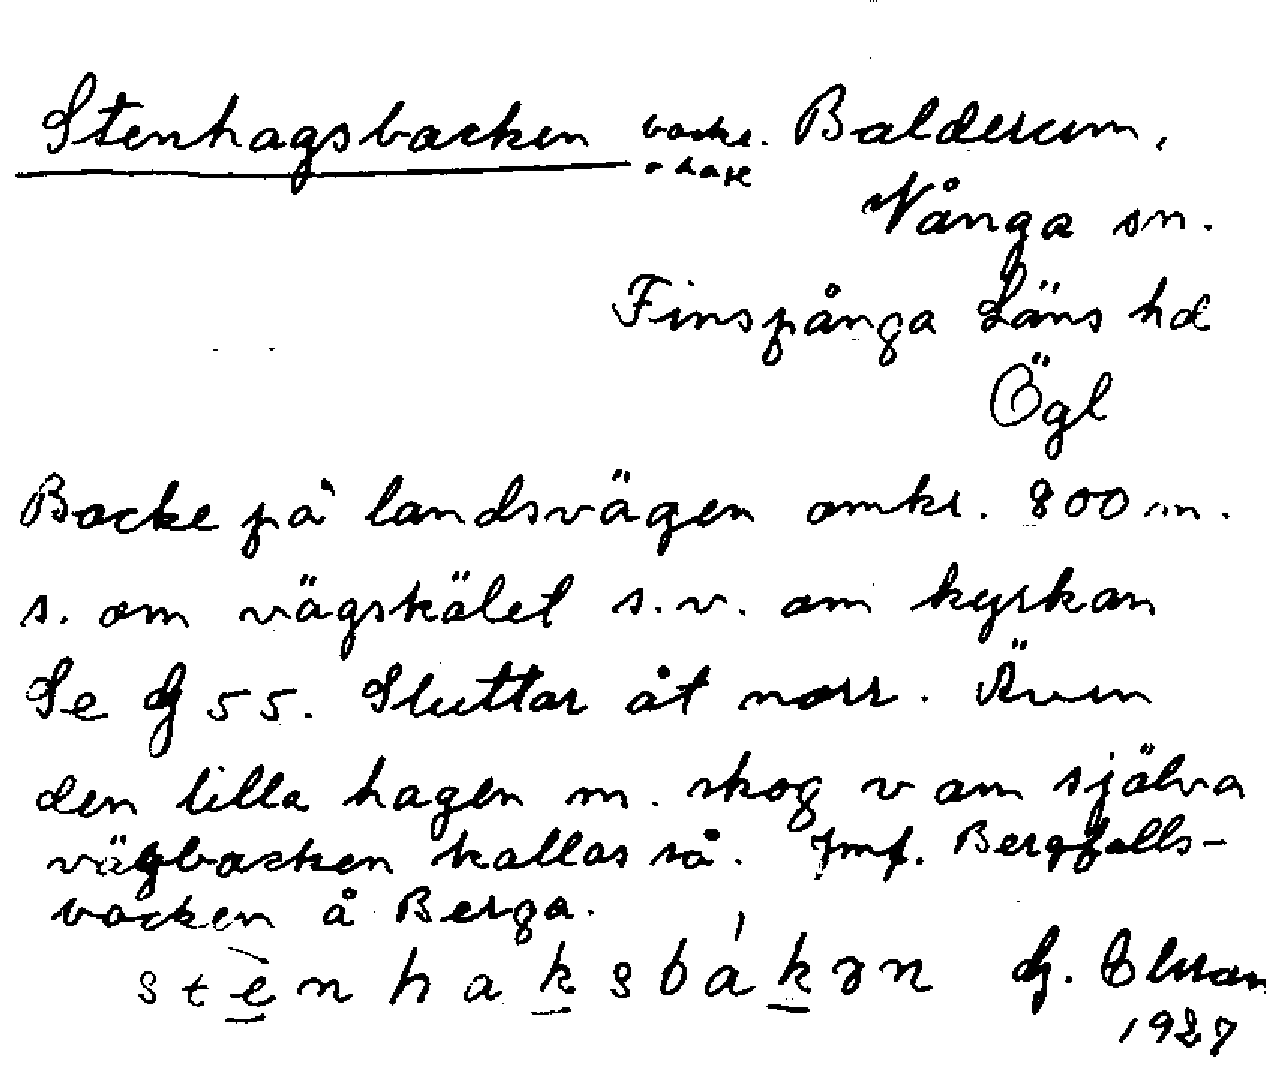 Stenhagsbacken backe. Balderum,
o hage
Vånga sn.
Finspånga Läns hd
Ögl
Backe på landsvägen omkr. 800 m.
s. om vägskälet s.v. om kyrkan
Se G 55. Sluttar åt norr. Även
den lilla hagen m. skog v om själva
vägbacken kallas så. Jmf. Bergfalls-
backen å Berga.
stènhaksbákən G.
1927